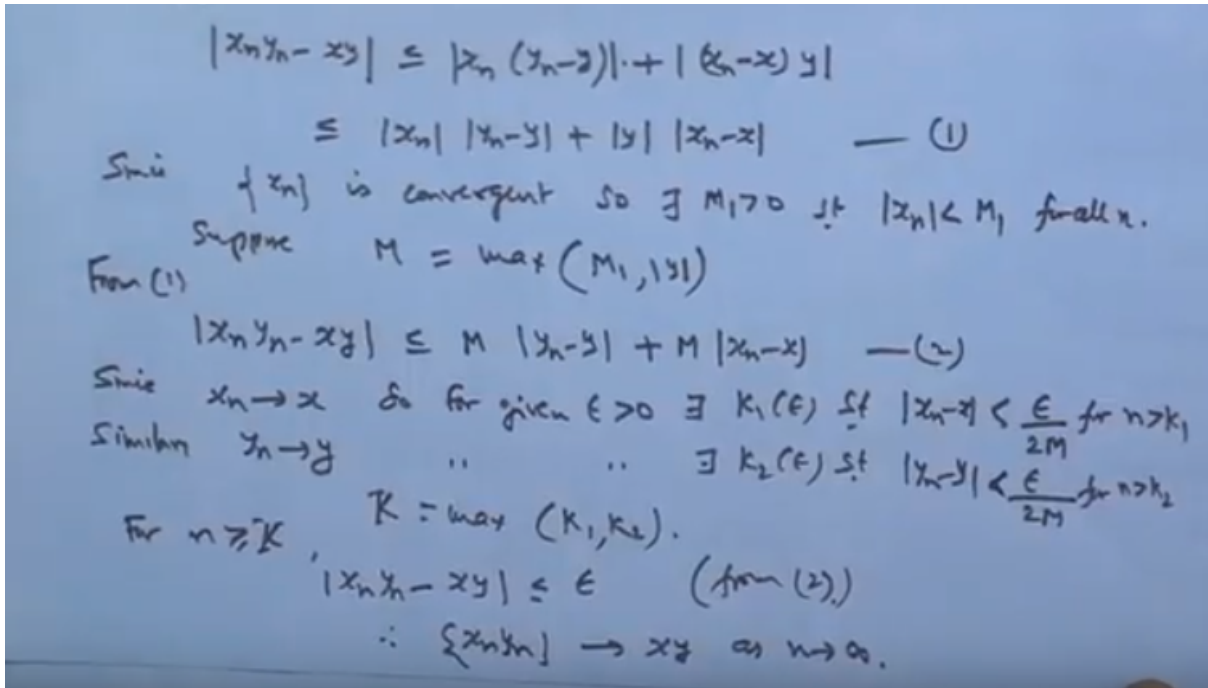 |xₙyₙ - xy| ≤ |xₙ (yₙ-y)| + |(xₙ-x) y|
≤ |xₙ| |yₙ-y| + |y| |xₙ-x| — (1)
Since {xₙ} is convergent so ∃ M₁>0 st |xₙ|< M₁ for all n.
Suppose M = max (M₁, |y|)
From (1)
|xₙyₙ - xy| ≤ M |yₙ-y| + M |xₙ-x| —(2)
Since xₙ→x So for given ε >0 ∃ K₁(ε) st |xₙ-x| < ε/2M for n>k₁
Similar yₙ→y '' '' ∃ K₂(ε) st |yₙ-y| < ε/2M for n>k₂
K = max (K₁, K₂).
For n ≥ K,
|xₙyₙ - xy| ≤ ε (from (2).)
∴ {xₙyₙ} → xy as n→∞.